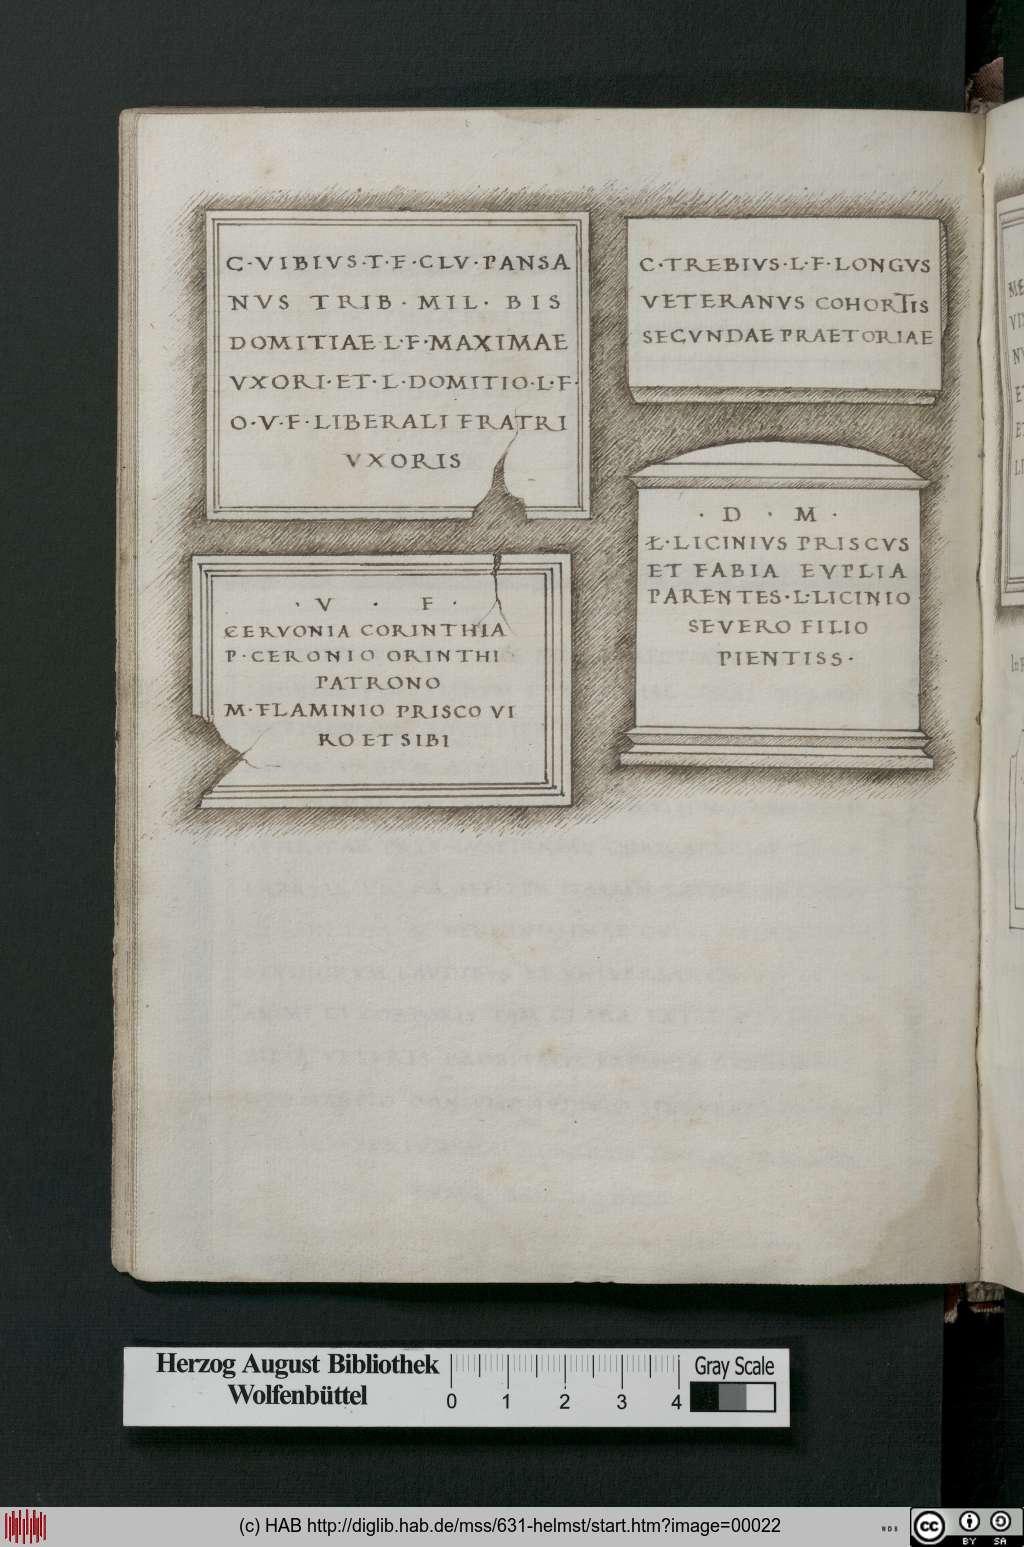 C·VIBIVS·T·F·CLV·PANSA
NVS TRIB·MIL·BIS
DOMITIAE·L·F·MAXIMAE
VXORI·ET·L·DOMITIO·L·F·
O·V·F·LIBERALI FRATRI
VXORIS
C·TREBIVS·L·F·LONGVS
VETERANVS COHORTIS
SECVNDAE PRAETORIAE
·V·F·
CERVONIA CORINTHIA
P·CERONIO ORINTHI
PATRONO
M·FLAMINIO PRISCO VI
RO ET SIBI
·D·M·
L·LICINIVS PRISCVS
ET FABIA EVPLIA
PARENTES·L·LICINIO
SEVERO FILIO
PIENTISS·
Herzog August Bibliothek
Wolfenbüttel
0 1 2 3 4
Gray Scale
(c) HAB http://diglib.hab.de/mss/631-helmst/start.htm?image=00022
WDB
cc BY SA